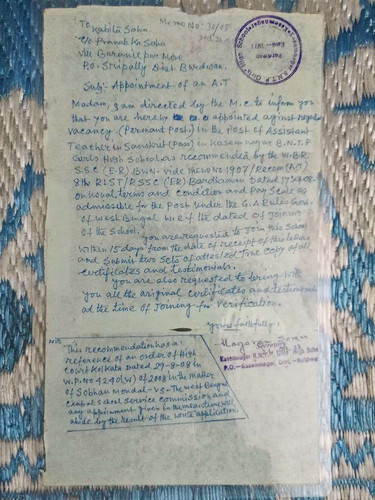 Memo No: 30/05
To
Kabita Saha
C/o Pranab Kr Saha
Vill Baranilpur More
P.O. Sripally Dist Bwdwan
Sub:- Appointment of an A.T
Madam, I am directed by the M.C. to inform you
that you are hereby appointed against regular
vacancy. (Permant Post.) in the Post of Assistant
Teacher in Sanskrit (Pass) in Kasemnagar B.N.T.P
Girls High School as recommended by the W.B.R.
S.S.C (E.R) BWN. vide Memo No 1907/Recom(AT)
8th RLST/RSSC (E.R) Bardhaman Dated
on usual terms and condition and Pay Scale as
admissible for the Post under the G.A Rules Gov.
of West Bengal w.e.f the dated of Joining
of the School. You are requested to Join this School
within 15 days from the date of receipt of this letter
and submit two sets of attested True copy of all
certificates and testimonials.
You are also requested to bring with
you all the original certificates and testimonial
at the time of Joining for verification.
Yours faithfully:
This recommendation has a
reference of an order of High
Court Kolkata Dated 29-8-08 in
W.P. No 4290(W) of 2008 in the matter
of Sobhan Mondal -VS- The West Bengal
Central School Service Commission and
any appoinment given in the meantime will
abide by the result of the Writ application.
Secretary
P.O.-Kasemnagar, Dist.-Burdwan